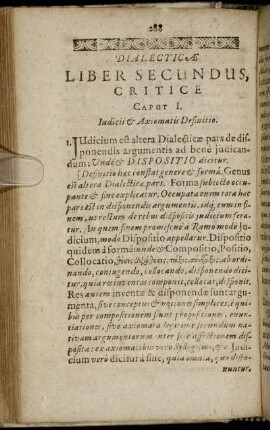 288
DIALECTICÆ
LIBER SECUNDUS,
CRITICE
CAPUT I.
Iudicii & Axiomatis Definitio.
1. IUdicium est altera Dialecticæ pars de dis-
ponendis argumentis ad benè judican-
dum: Unde & DISPOSITIO dicitur.
[Definitio hæc constat genere & formâ. Genus
est altera Dialecticæ pars. Forma subjecto occu-
pante & fine explicatur. Occupata enim tota hæc
pars est in disponendis argumentis, idq; eum in fi-
nem, ut rectum de rebus dispositis judicium fera-
tur. An quem finem præmisse à Ramo modò Ju-
dicium, modò Dispositio appellatur. Dispositio
quidem à formâ unde & Compositio, Positio,
Collocatio, ab ordi-
nando, conjugendo, collocando, disponendo dici-
tur, quia res inventas componit, collocat, disponit.
Res autem inventæ & disponendæ sunt argu-
menta, sive conceptus & notiones simplices, è qui-
bus per compositionem sunt propositiones, enun-
tiationes, sive axiomata legitimè secundùm nati-
vam argumentorum inter se affectionem dis-
posita: ex axiomatibus verò Syllogismi, &c. Judi-
cium verò dicitur à fine, quia omnia, quæ dispo-
nuntur,